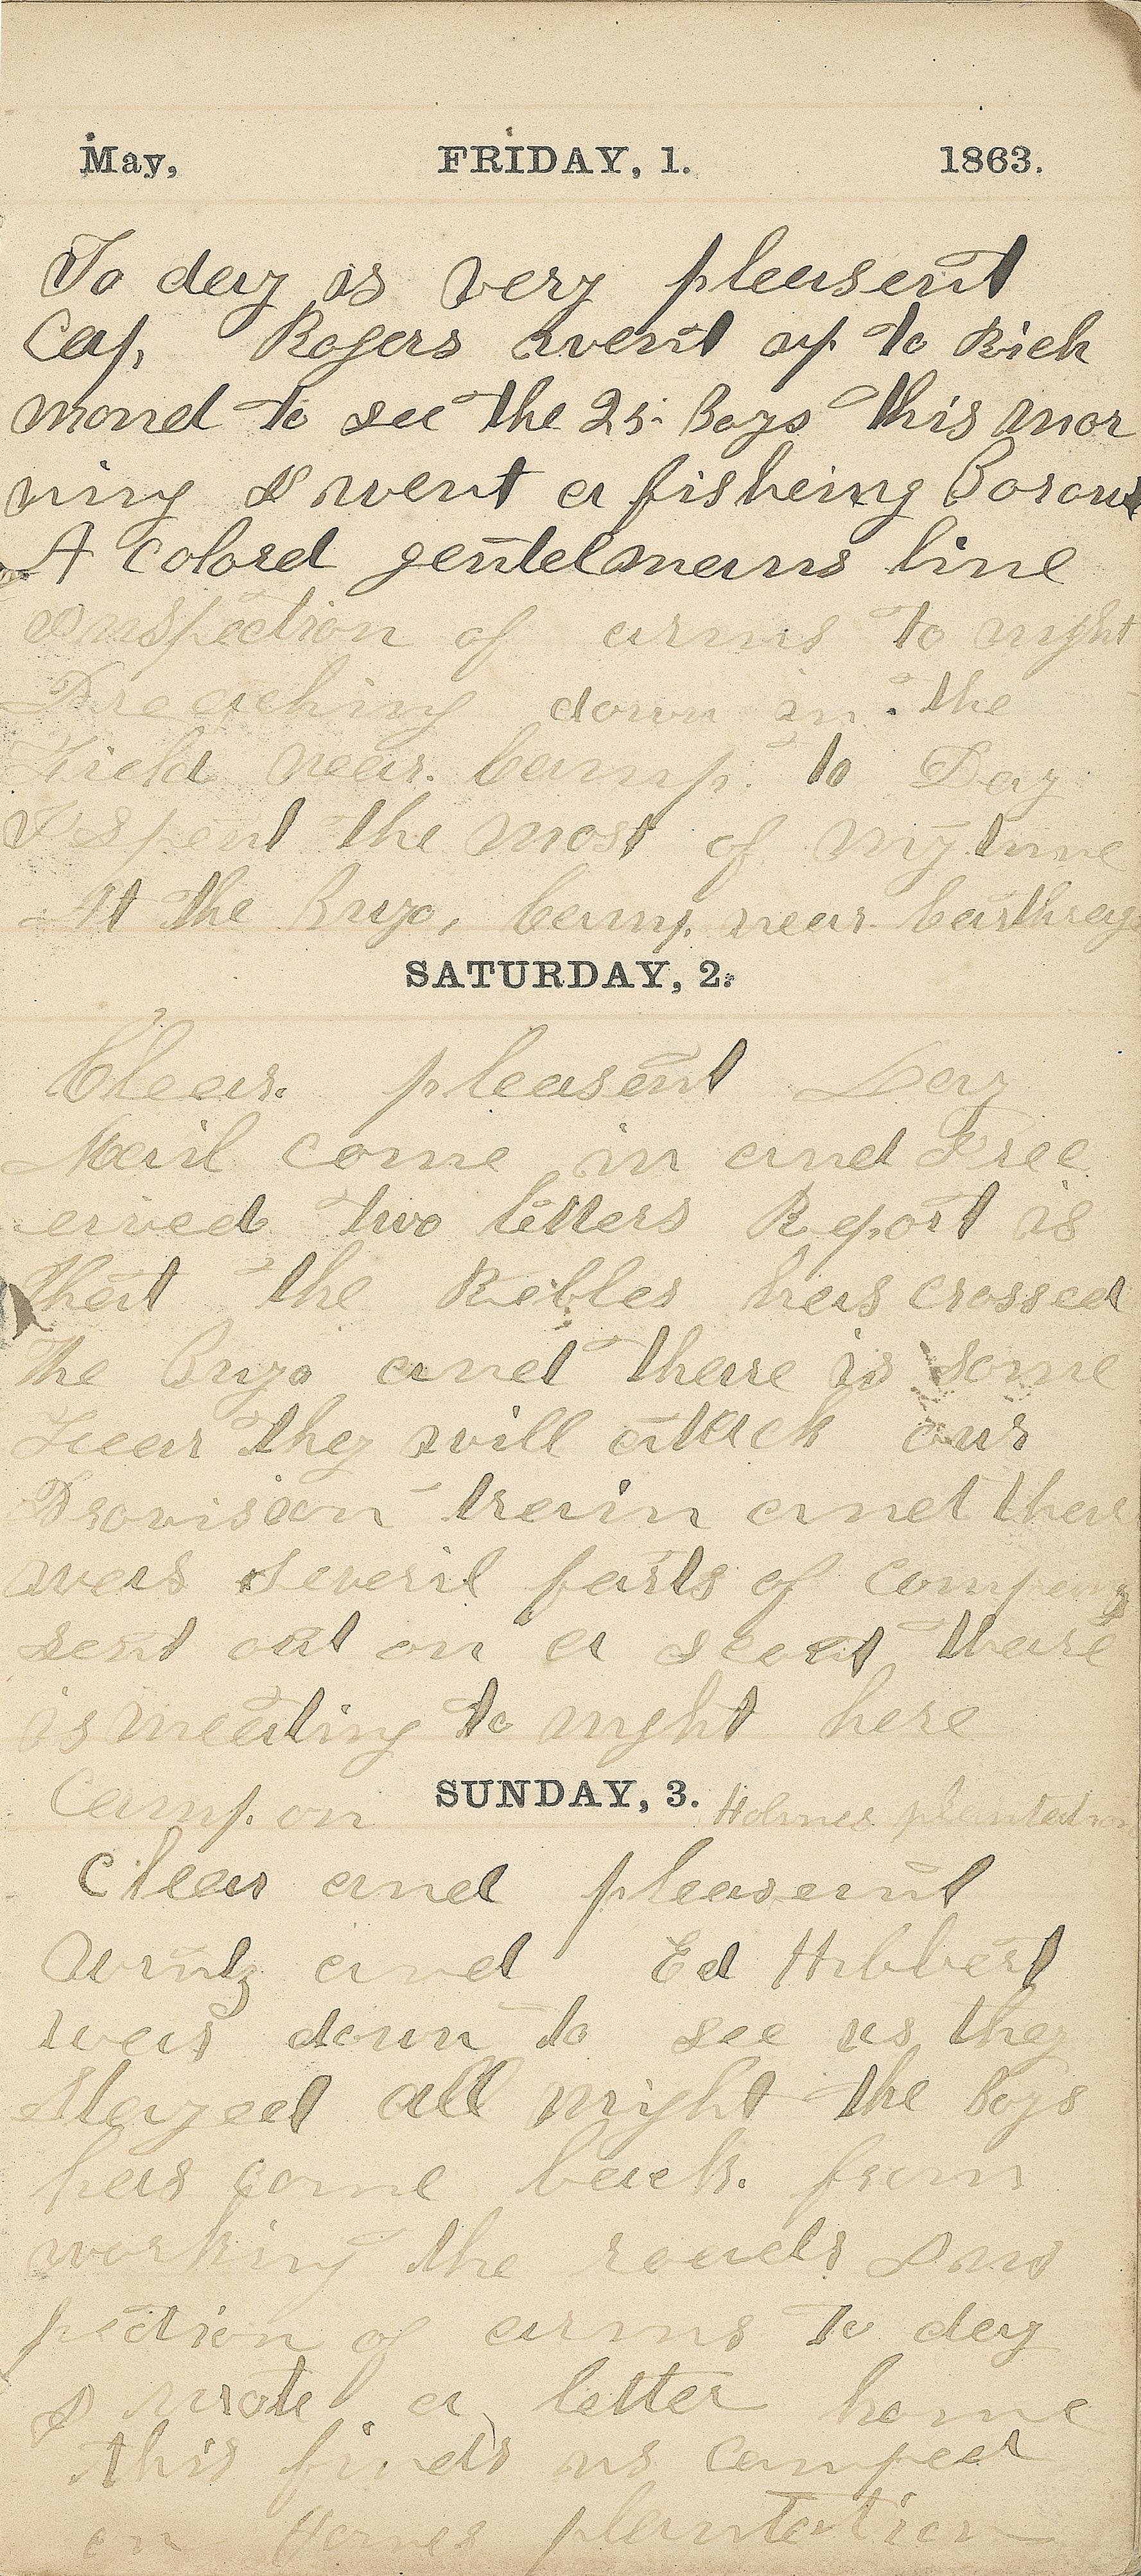 May, FRIDAY, 1. 1863.
To day is very pleasent
Cap, Rogers went up to Rich
mond to see the 25 Boys this mor
ning I went a fisheing Borowd
A colord gentelmans line
Inspection of arms to night
Preaching down in the
Field near Camp. to Day
I spent the most of my time
At the Buyo, Camp near
SATURDAY, 2.
Clear. pleasent Day
Mail come in and I rec
eived two letters Report is
that the Rebles has crossed
The Buyo and there is some
Fear they will attack our
Provision train and thare
was severil parts of company
sent out on a scout thare
is meeting to night here
Camp on Holmes plantation
SUNDAY, 3.
Clear and pleasent
and Ed Hibbert
was down to see us they
Stayed all night the Boys
has come back from
working the roads Ins
pection of arms to day
I wrote a letter home
this finds us camped
on plantation